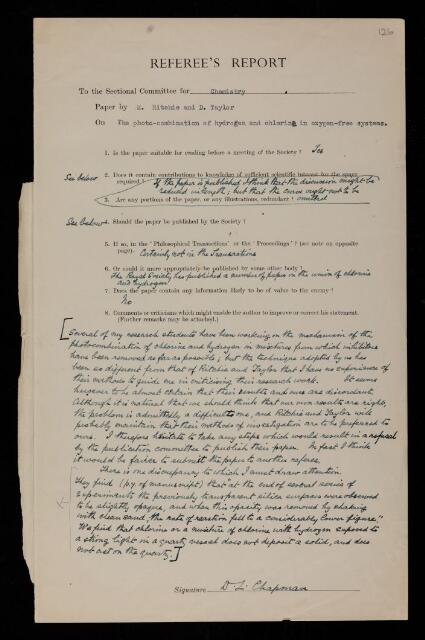 126
REFEREE'S REPORT
To the Sectional Committee for Chemistry.
Paper by M. Ritchie and D. Taylor
On The photo-combination of hydrogen and chlorine in oxygen-free systems.
1. Is the paper suitable for reading before a meeting of the Society? Yes
See below 2. Does it contain contributions to knowledge of sufficient scientific interest for the space
required? If the paper is published I think that the discussion might be
reduced in length; but that the curves ought not to be
3. Are any portions of the paper, or any illustrations, redundant? omitted
See below 4. Should the paper be published by the Society?
5. If so, in the 'Philosophical Transactions' or the 'Proceedings'? (see note on opposite
page). Certainly not in the Transactions
6. Or could it more appropriately be published by some other body?
The Royal Society has published a number of papers on the union of chlorine
and hydrogen
7. Does the paper contain any information likely to be of value to the enemy?
No
8. Comments or criticisms which might enable the author to improve or correct his statement.
(Further remarks may be attached.)
[Several of my research students have been working on the mechanism of the
photo-combination of chlorine and hydrogen in mixtures from which inhibitors
have been removed as far as possible; but the technique adopted by us has
been so different from that of Ritchie and Taylor that I have no experience of
their methods to guide me in criticising their research work. It seems
however to be almost certain that their results and ours are discordant.
Although it is natural that we should think that our own results are right,
the problem is admittedly a difficult one, and Ritchie and Taylor will
probably maintain that their methods of investigation are to be preferred to
ours. I therefore hesitate to take any steps which would result in a refusal
by the publication committee to publish their paper. In fact I think
it would be fairer to submit the paper to another referee.
There is one discrepancy to which I must draw attention.
They find (p. of manuscript) that at the end of several series of
experiments the previously transparent silica surfaces were observed
to be slightly opaque, and when this opacity was removed by shaking
with clean sand, "the rate of reaction fell to a considerably lower figure."
We find that chlorine or a mixture of chlorine with hydrogen exposed to
a strong light in a quartz vessel does not deposit a solid, and does
not act on the quartz.]
Signature D. L. Chapman